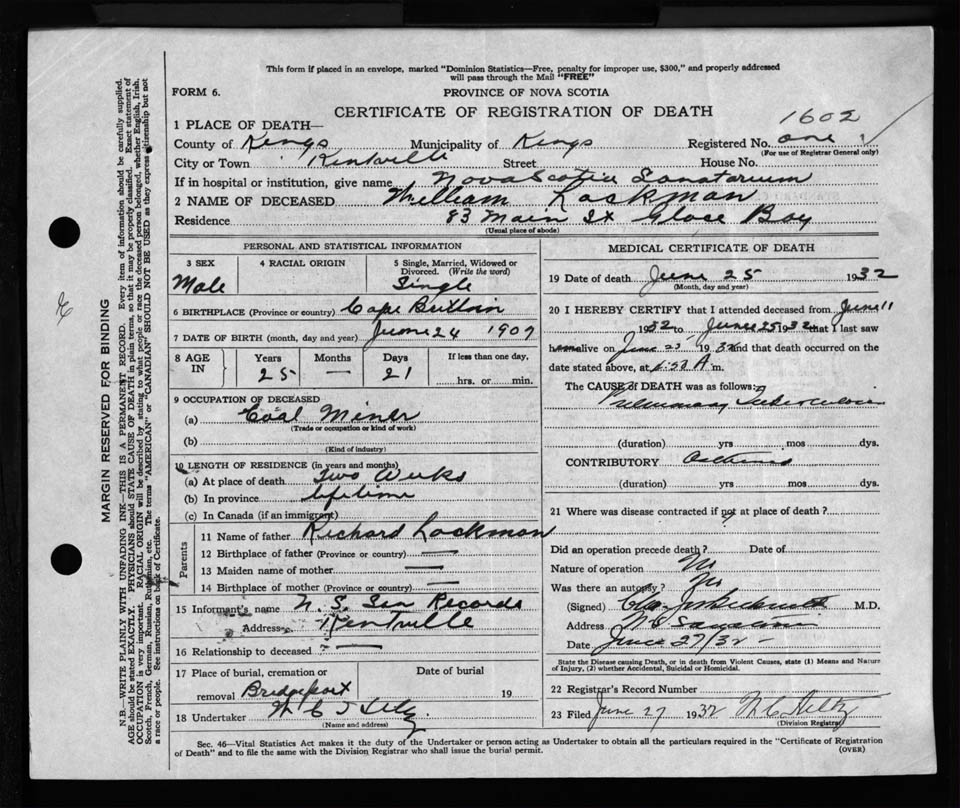 This form if placed in an envelope, marked "Dominion Statistics—Free, penalty for improper use, $300," and properly addressed
will pass through the Mail "FREE"
FORM 6.
PROVINCE OF NOVA SCOTIA
CERTIFICATE OF REGISTRATION OF DEATH
1602
1 PLACE OF DEATH—
County of Kings Municipality of Kings Registered No. one
(For use of Registrar General only)
City or Town Kentville Street House No.
If in hospital or institution, give name Nova Scotia Sanatarium
2 NAME OF DECEASED William Lockman
Residence 83 Main St Glace Bay
(Usual place of abode)
PERSONAL AND STATISTICAL INFORMATION
3 SEX
Male
4 RACIAL ORIGIN
5 Single, Married, Widowed or
Divorced. (Write the word)
Single
6 BIRTHPLACE (Province or country) Cape Brittain
7 DATE OF BIRTH (month, day and year) June 24 1907
8 AGE IN
Years Months Days If less than one day,
25 — 21
hrs. or min.
9 OCCUPATION OF DECEASED
(a) Coal Miner
(Trade or occupation or kind of work)
(b)
(Kind of industry)
10 LENGTH OF RESIDENCE (in years and months)
(a) At place of death Two Weeks
(b) In province lifetime
(c) In Canada (if an immigrant)
Parents
11 Name of father Richard Lockman
12 Birthplace of father (Province or country) —
13 Maiden name of mother —
14 Birthplace of mother (Province or country) —
15 Informant's name N. S. San Records
Address Kentville
16 Relationship to deceased —
17 Place of burial, cremation or
removal Bridgeport
Date of burial
19
18 Undertaker W C T
(Name and address)
MEDICAL CERTIFICATE OF DEATH
19 Date of death June 25 1932
(Month, day and year)
20 I HEREBY CERTIFY that I attended deceased from June 11
1932 to June 25 1932 that I last saw
him alive on June 25 1932 and that death occurred on
date stated above, at A m.
The CAUSE of DEATH was as follows:
Pulmonary Tuberculosis
(duration) yrs mos dys.
CONTRIBUTORY
(duration) yrs mos dys.
21 Where was disease contracted if not at place of death?
Did an operation precede death? Date of
Nature of operation No
Was there an autopsy? No
(Signed) M.D.
Address N S
Date June 27/32
State the Disease causing Death, or in death from Violent Causes, state (1) Means and Nature
of Injury, (2) whether Accidental, Suicidal or Homicidal.
22 Registrar's Record Number
23 Filed June 27 1932
(Division Registrar)
Sec. 46—Vital Statistics Act makes it the duty of the Undertaker or person acting as Undertaker to obtain all the particulars required in the "Certificate of Registration
of Death" and to file the same with the Division Registrar who shall issue the burial permit.
(OVER)
MARGIN RESERVED FOR BINDING
N.B.—WRITE PLAINLY WITH UNFADING INK—THIS IS A PERMANENT RECORD. Every item of information should be carefully supplied.
AGE should be stated EXACTLY. PHYSICIANS should STATE CAUSE OF DEATH in plain terms, so that it may be properly classified. Exact statement of
OCCUPATION is very important. RACIAL ORIGIN will be described by stating to what people or race the deceased person belonged, whether English, Irish,
Scotch, French, German, Russian, Ruthenian, etc. The terms "AMERICAN" or "CANADIAN" SHOULD NOT BE USED as they express citizenship but not
a race or people. See instructions on back of Certificate.